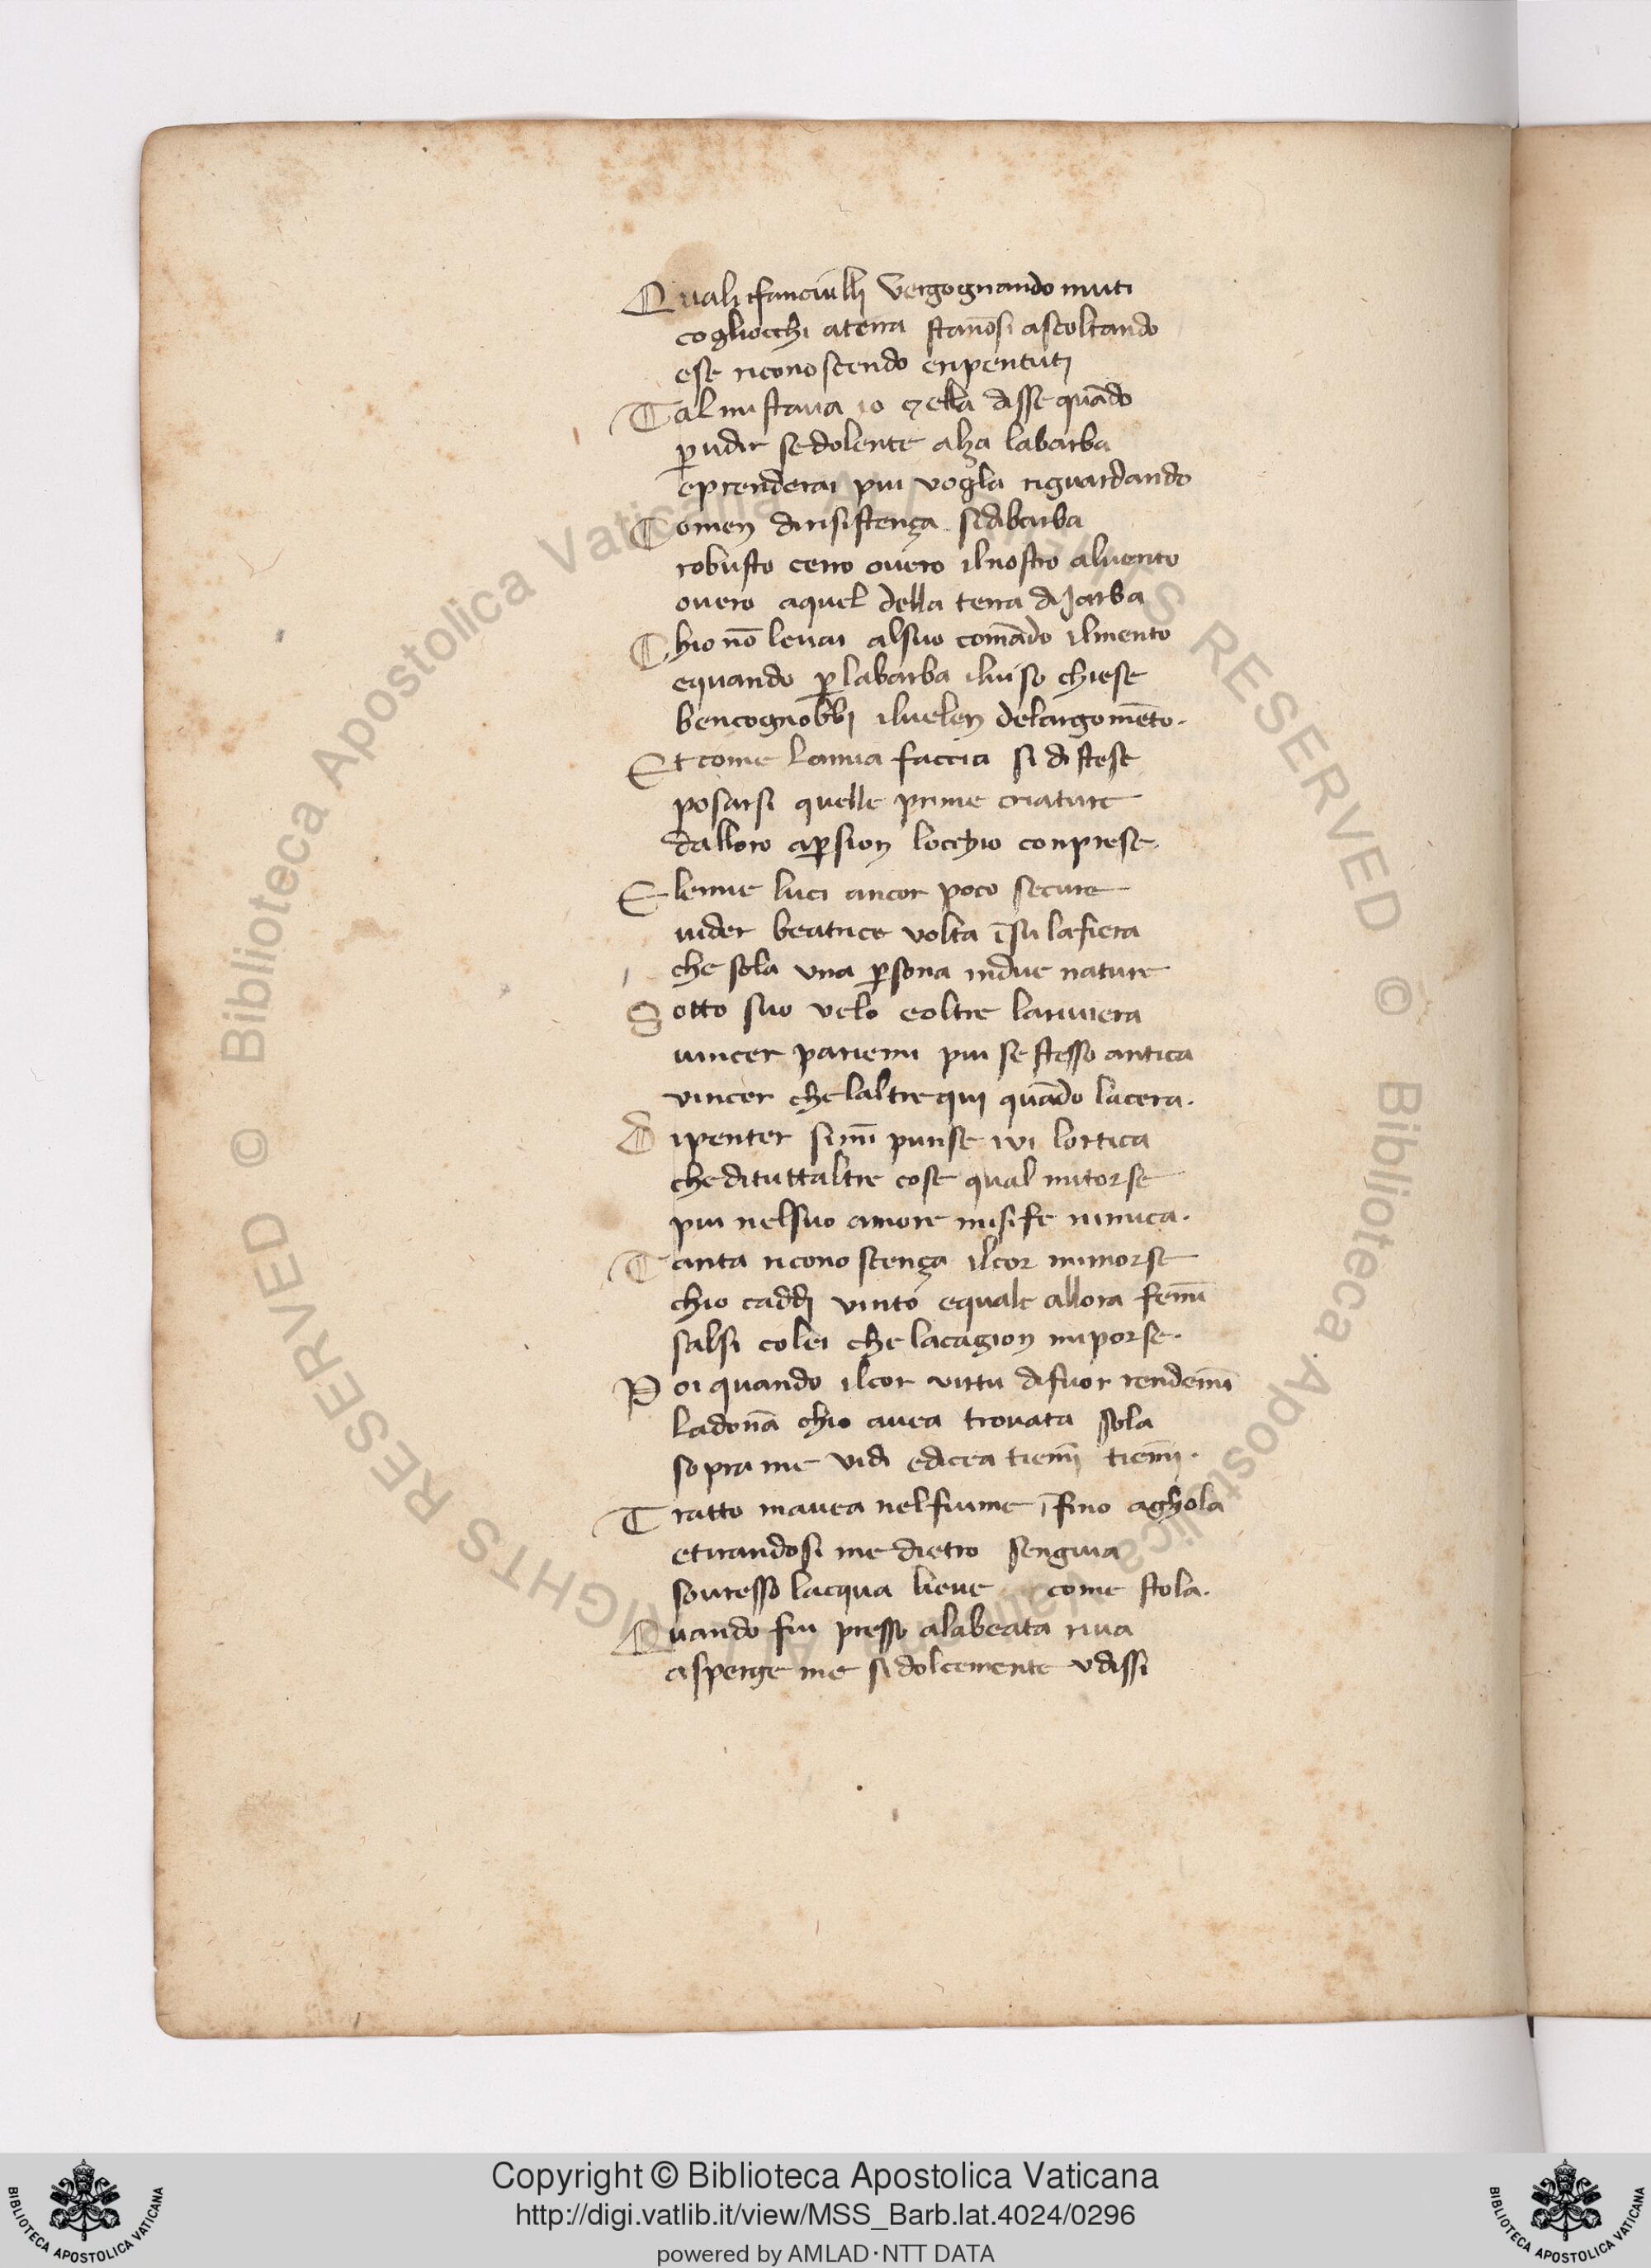 Quali fanciulli vergognando muti
cogliocchi aterra stanosi ascoltando
ese riconoscendo eripentuti
Tal mi stava io ⁊ ella disse quādo
ꝑ udir sedolente alza labarba
eprenderai piu vogla riguardando
Comen diresistença sidibarba
robusto cerro overo ilnostro alvento
overo aquel della terra di Jarba
Chio nō levai alsuo comādo ilmento
equando ꝑ labarba ilviso chiese
bencognobbi ilvelen delargomēto.
Et come lamia faccia si distese
posarsi quelle prime criature
dalloro aꝑsion locchio conprese.
E lemie luci ancor poco secure
vider beatrice volta ī su lafiera
che sola una ꝑsona indue nature
Sotto suo velo eoltre lariviera
vincer pariemi piu se stesso antica
vincer che laltre qui quādo lacera.
Dipenter simī punse ivi lortica
che dituttaltre cose qual mitorse
piu nelsuo amore misife nimica.
Tanta riconoscença ilcor mimorse
chio caddi vinto equale allora femī
salsi colei che lacagion miporse.
Poi quando ilcor virtu difuor rendemī
ladonā chio avea trovata sola
sopra me vidi edicea tiemī tiemī.
Tratto mavea nelfiume īfino aghola
etirandosi me dietro sengiva
sovresso lacqua lieve come stola.
Quando fui presso alabeata riva
asperge me sidolcemente udissi
© Biblioteca Apostolica Vaticana ALL RIGHTS RESERVED © Biblioteca Apostolica Vaticana ALL RIGHTS RESERVED
Copyright © Biblioteca Apostolica Vaticana
http://digi.vatlib.it/view/MSS_Barb.lat.4024/0296
powered by AMLAD·NTT DATA
BIBLIOTECA APOSTOLICA VATICANA
BIBLIOTECA APOSTOLICA VATICANA